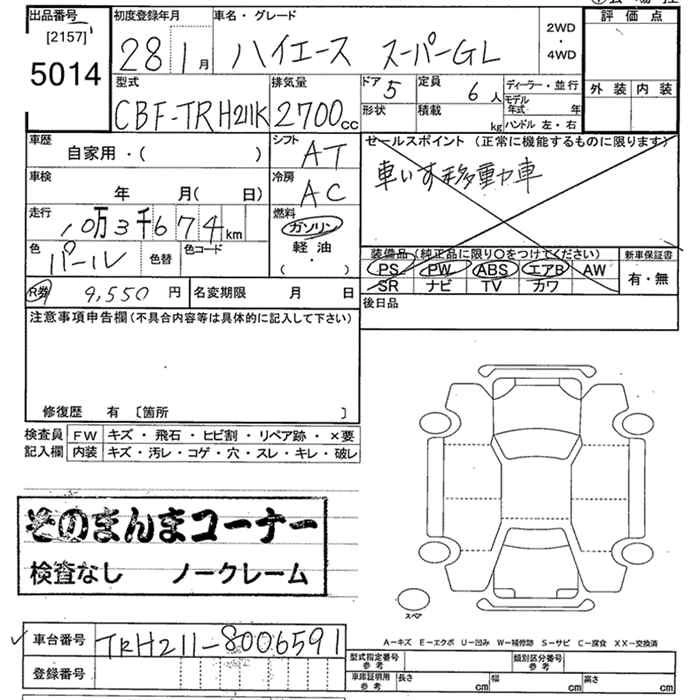 出品番号 初度登録年月 車名・グレード 評価点
[2157]
5014
28 1月 ハイエース スーパーGL 2WD・4WD
型式 排気量 ドア 5 定員 6人 ディーラー・並行 外装 内装
CBF-TRH211K 2700cc 形状 積載 kg モデル年式 年
ハンドル 左・右
車歴 シフト セールスポイント (正常に機能するものに限ります)
自家用・( ) AT
車いす移動車
車検 冷房
年 月( 日) AC
走行 10万3千674km 燃料
ガソリン
色 パール 色替 色コード 軽油
( ・ )
装備品(純正品に限り○をつけてください) 新車保証書
PS PW ABS エアB AW 有・無
SR ナビ TV カワ
R券 9,550円 名変期限 月 日 後日品
注意事項申告欄(不具合内容等は具体的に記入して下さい)
修復歴 有 〔箇所 〕
検査員 FW キズ・飛石・ヒビ割・リペア跡・×要
記入欄 内装 キズ・汚レ・コゲ・穴・スレ・キレ・破レ
そのまんまコーナー
検査なし ノークレーム
スペア
A-キズ E-エクボ U-凹み W-補修跡 S-サビ C-腐食 XX-交換済
✓ 車台番号 TRH211-8006591
登録番号
型式指定番号 参考 類別区分番号 参考
車庫証明用 参考 長さ cm 幅 cm 高さ cm